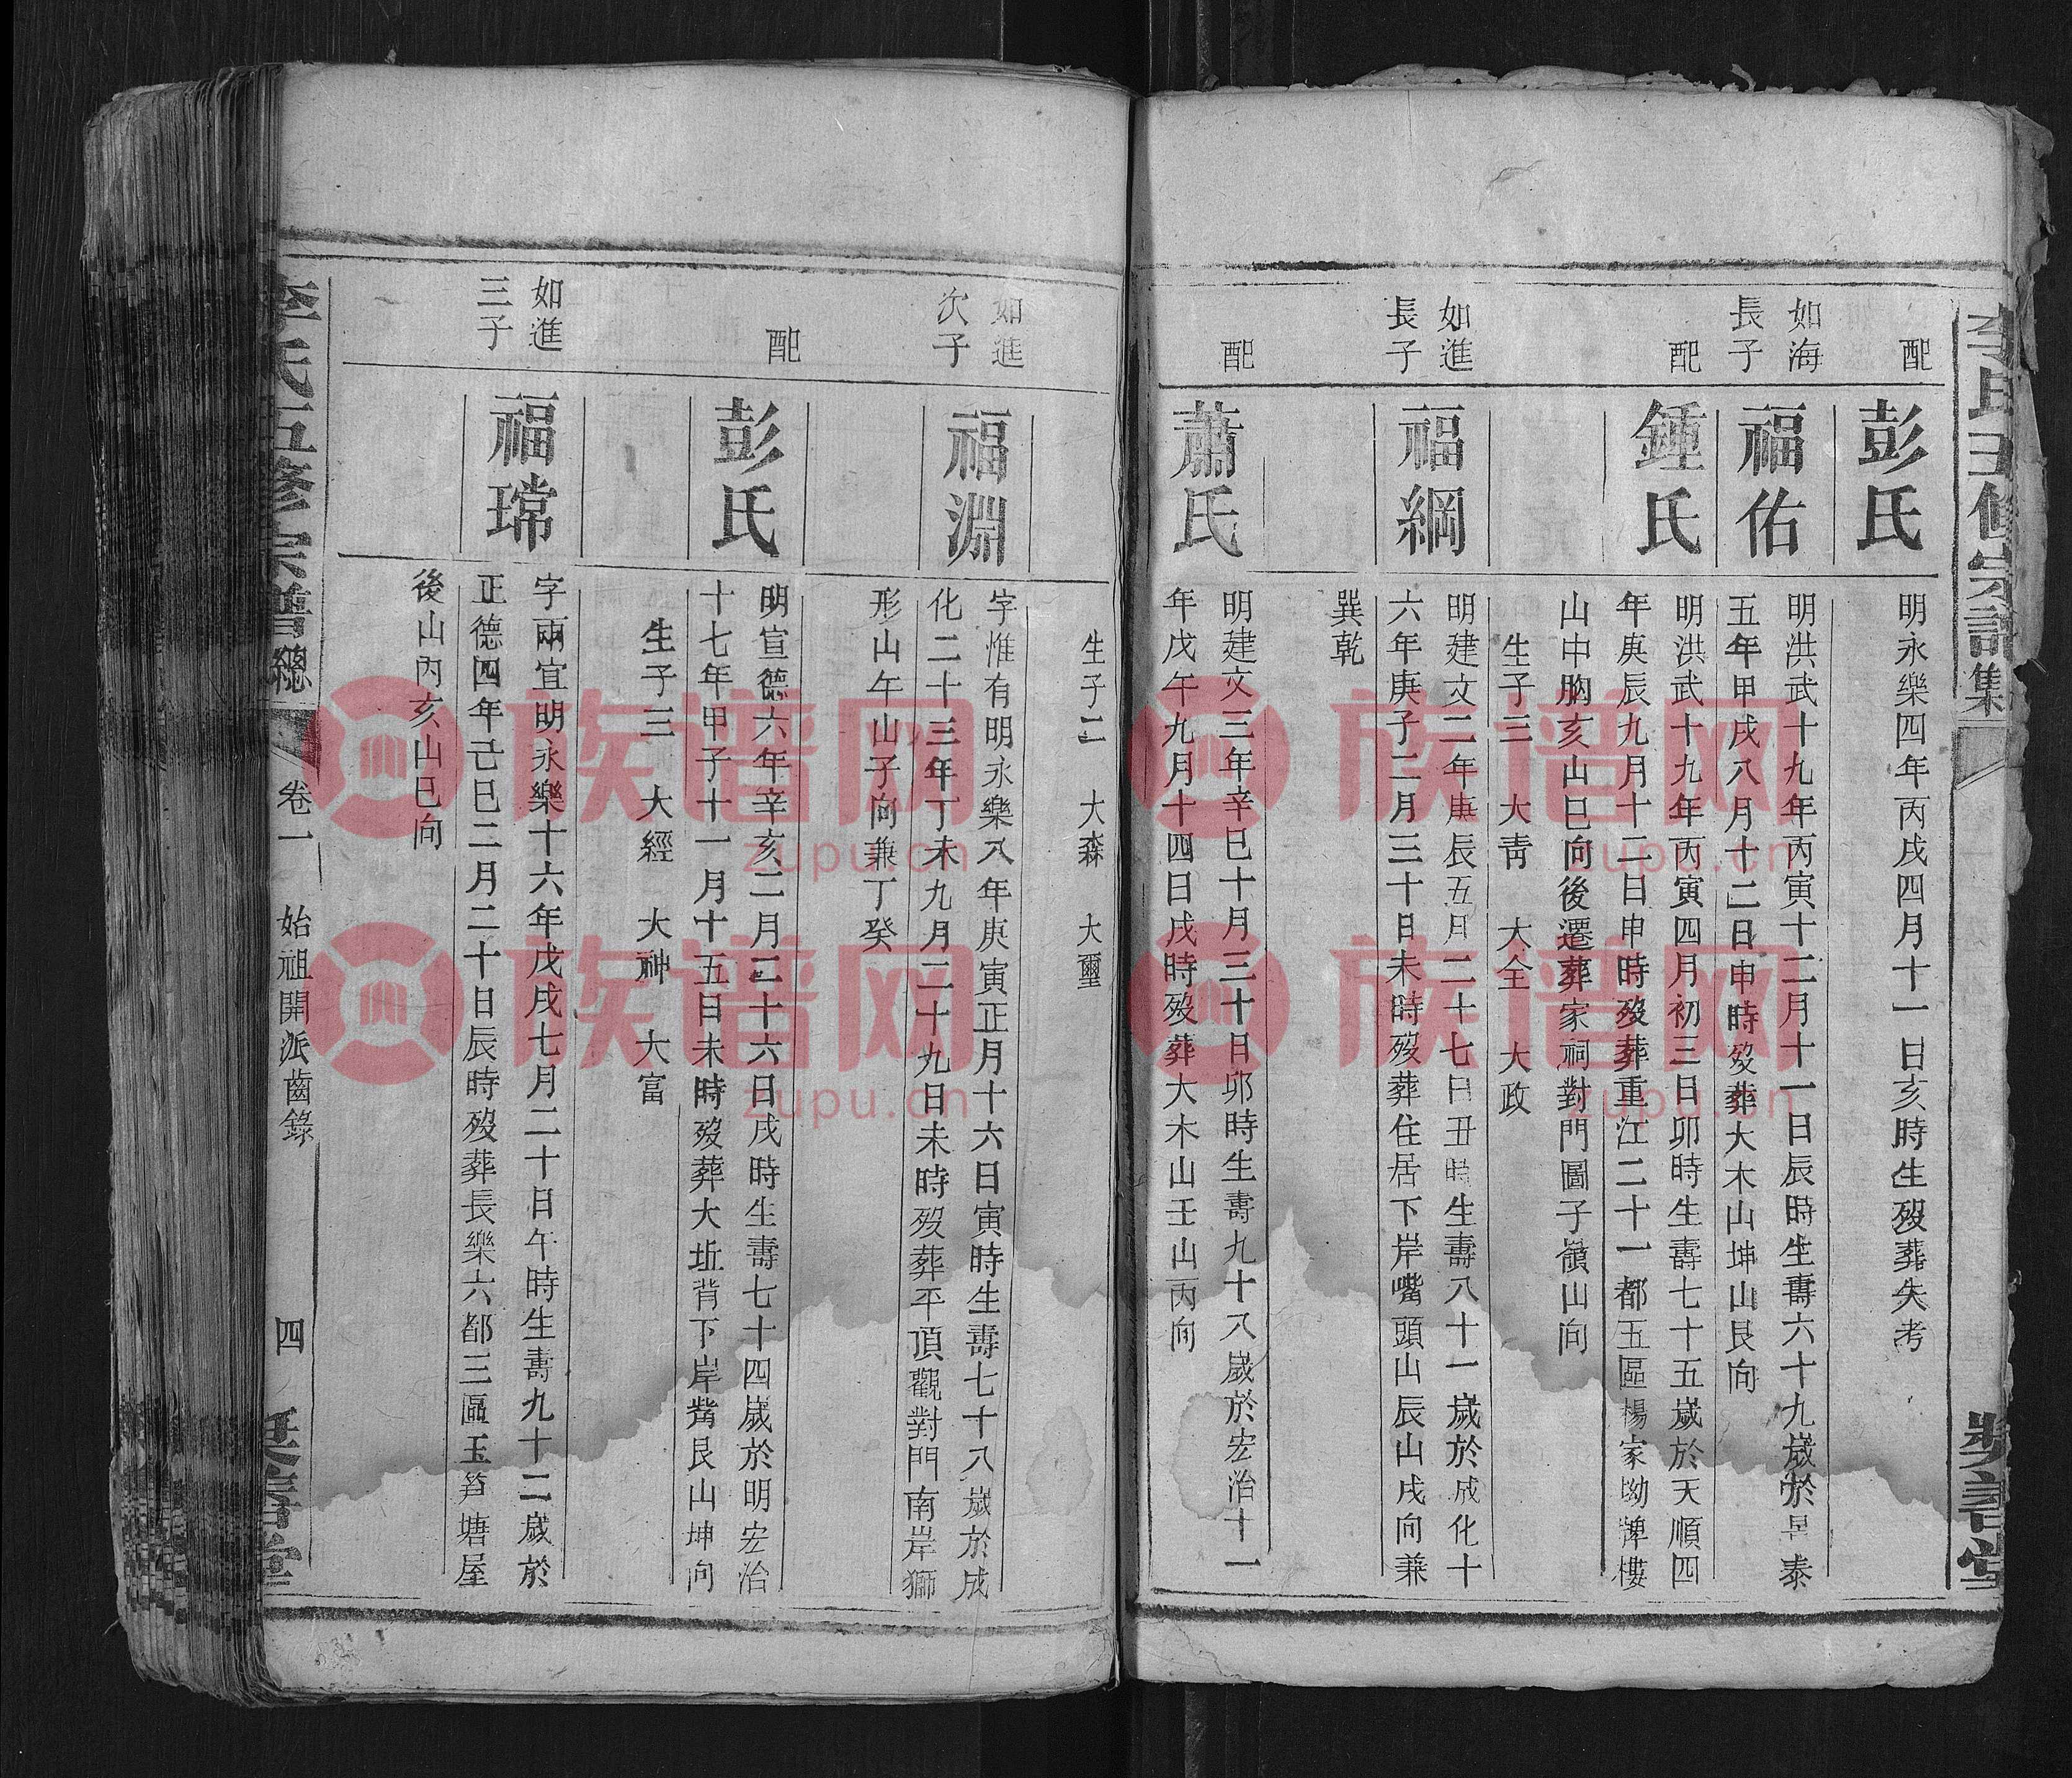 李氏五修宗譜集
樂善堂
配
彭氏
明永樂四年丙戌四月十一日亥時生歿葬失考
如海
長子
福佑
明洪武十九年丙寅十二月十一日辰時生壽六十九歲於景泰
五年甲戌八月十二日申時歿葬大木山坤山艮向
配
鍾氏
明洪武十九年丙寅四月初三日卯時生壽七十五歲於天順四
年庚辰九月十二日申時歿葬重江二十一都五區楊家坳牌樓
山中胸亥山巳向後遷葬家祠對門圖子嶺山向
生子三 大靑 大全 大政
如進
長子
福綱
明建文二年庚辰五月二十七日丑時生壽八十一歲於成化十
六年庚子二月三十日未時歿葬住居下岸嘴頭山辰山戌向兼
巽乾
配
蕭氏
明建文三年辛巳十月三十日卯時生壽九十八歲於宏治十一
年戊午九月十四日戌時歿葬大木山壬山丙向
生子二 大森 大壐
如進
次子
福淵
字惟有明永樂八年庚寅正月十六日寅時生壽七十八歲於成
化二十三年丁未九月二十九日未時歿葬平頂觀對門南岸獅
形山午山子向兼丁癸
配
彭氏
明宣德六年辛亥二月二十六日戌時生壽七十四歲於明宏治
十七年甲子十一月十五日未時歿葬大坵背下岸嘴艮山坤向
生子三 大經 大神 大富
如進
三子
福瑺
字兩宜明永樂十六年戊戌七月二十日午時生壽九十二歲於
正德四年己巳二月二十日辰時歿葬長樂六都三區玉笋塘屋
後山內亥山巳向
李氏五修宗譜總
卷一
始祖開派齒錄
四
樂善堂
族谱网
zupu.cn
族谱网
zupu.cn
族谱网
zupu.cn
族谱网
zupu.cn